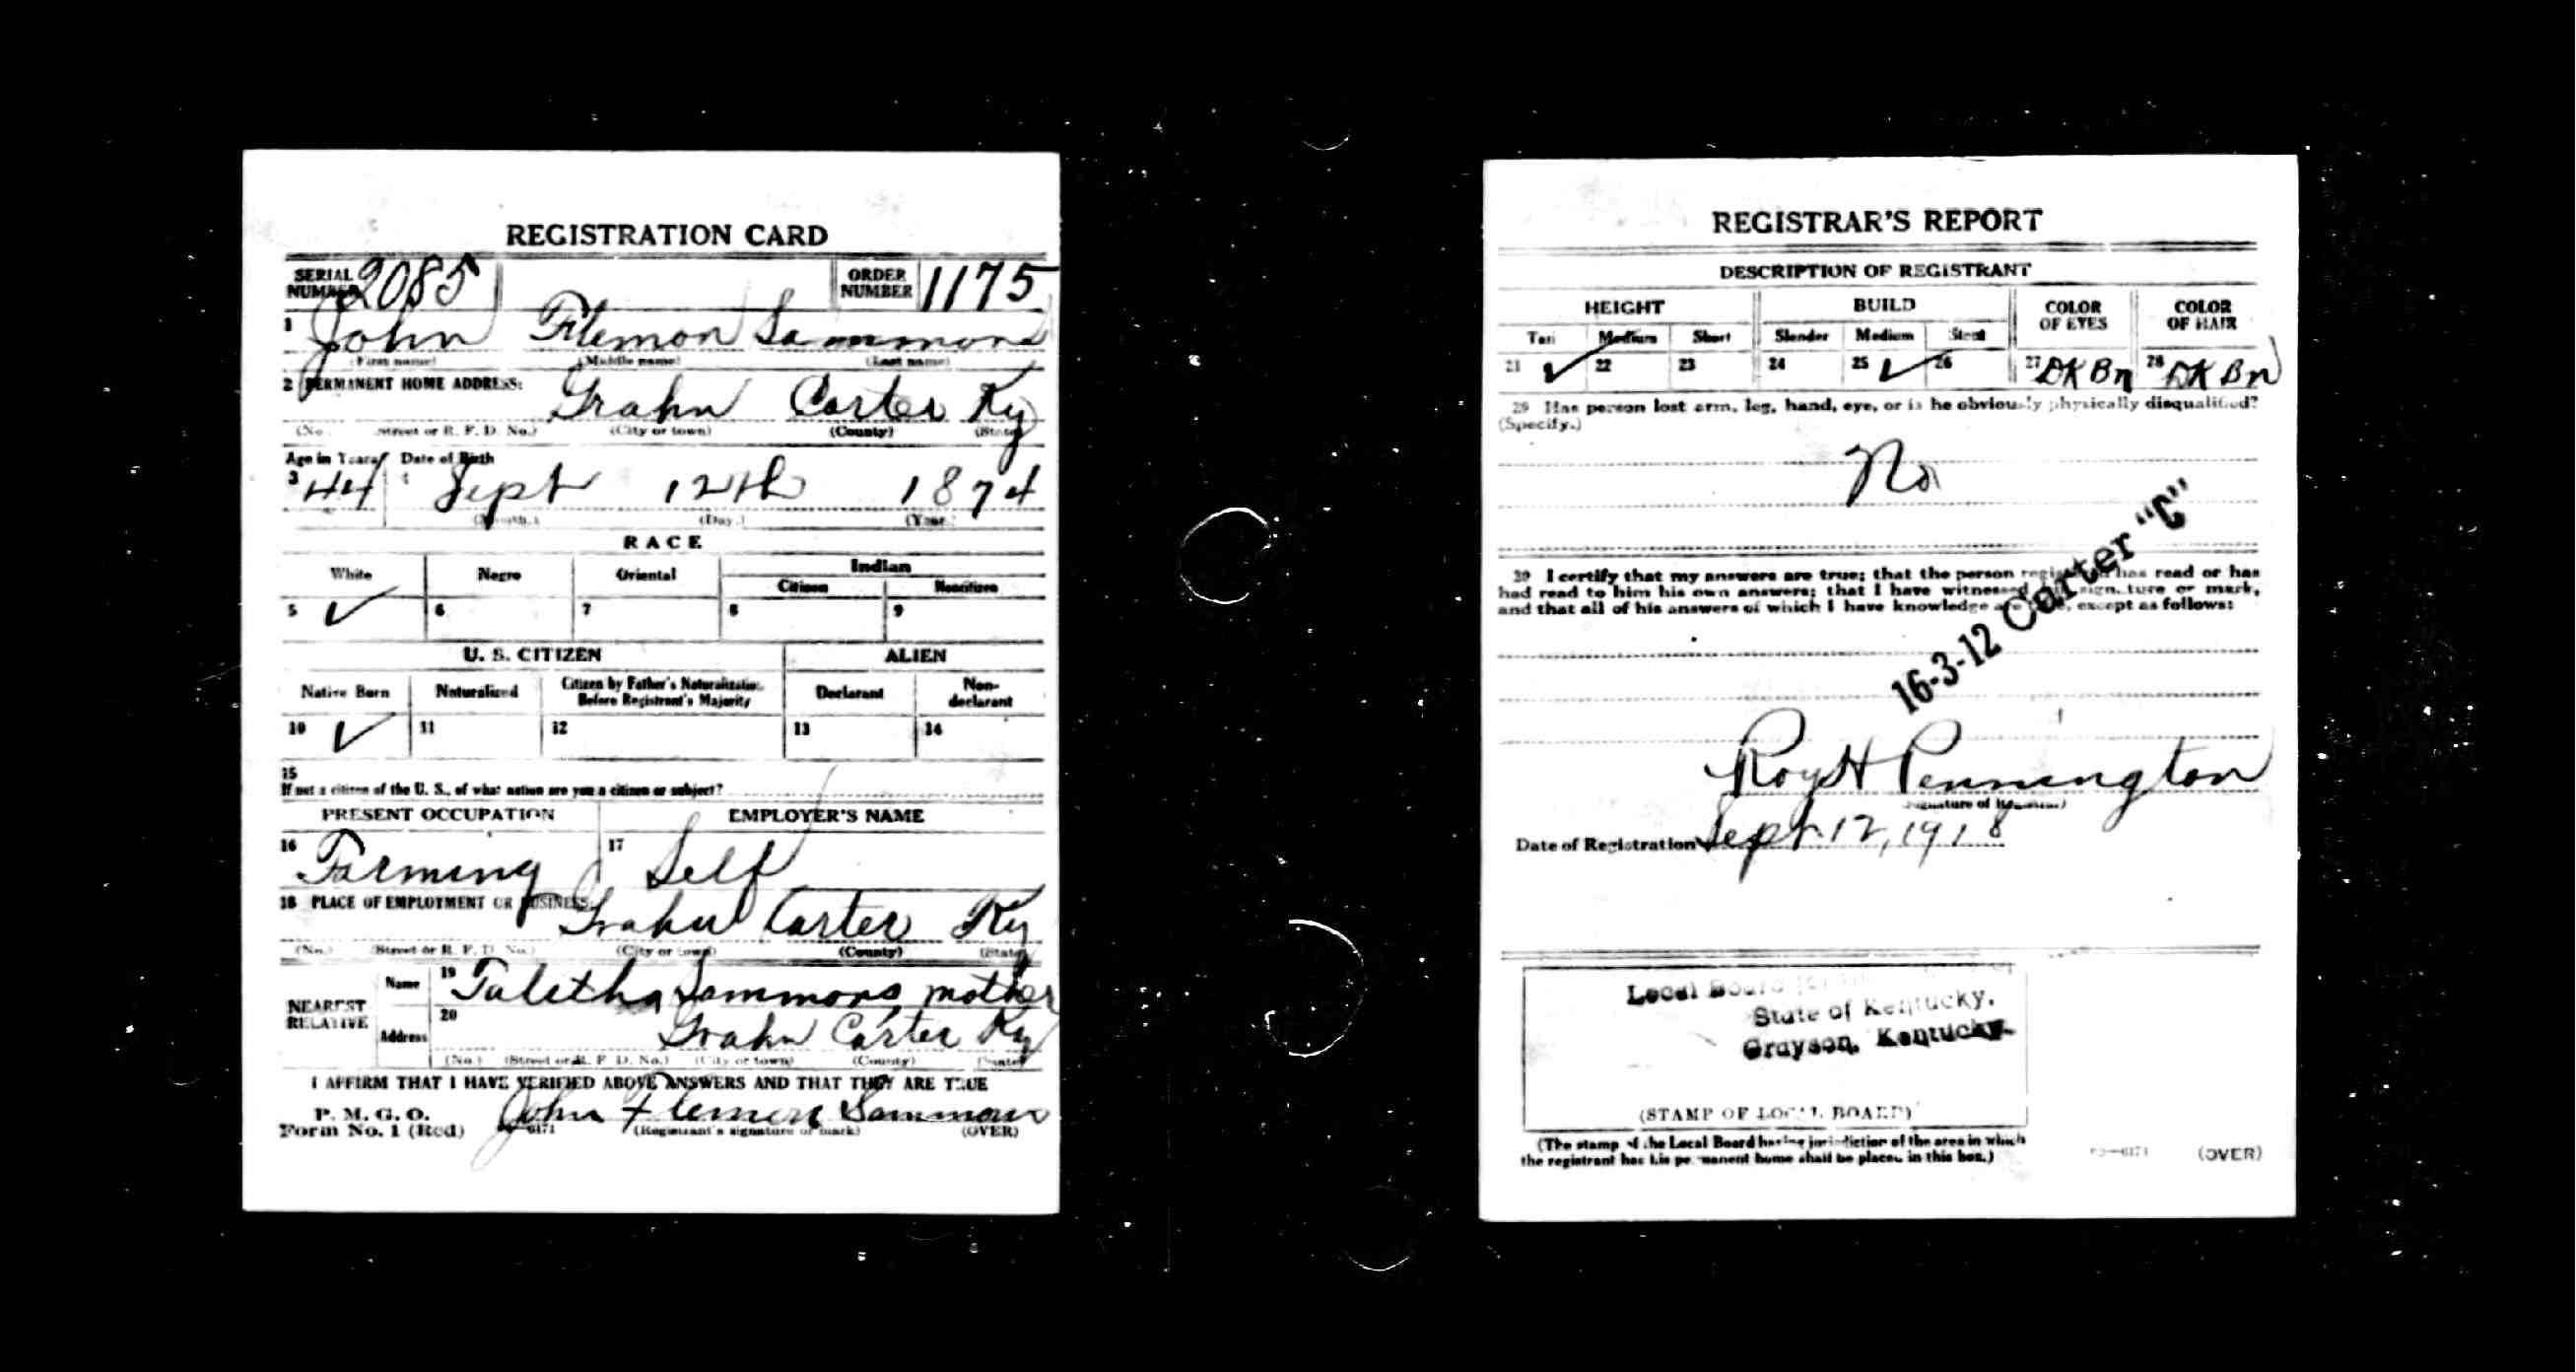 REGISTRATION CARD
SERIAL NUMBER 2085 ORDER NUMBER 1175
1 John Flemon Sammons
(First name) (Middle name) (Last name)
2 PERMANENT HOME ADDRESS:
Grahn Carter Ky
(No.) (Street or R. F. D. No.) (City or town) (County) (State)
Age in Years Date of Birth
3 44 4 Sept 12th 1874
(Month.) (Day.) (Year.)
RACE
White Negro Oriental Indian
Citizen Noncitizen
5 ✓ 6 7 8 9
U. S. CITIZEN ALIEN
Native Born Naturalized Citizen by Father's Naturalization Before Registrant's Majority Declarant Non-declarant
10 ✓ 11 12 13 14
15
If not a citizen of the U. S., of what nation are you a citizen or subject?
PRESENT OCCUPATION EMPLOYER'S NAME
16 Farming 17 Self
18 PLACE OF EMPLOYMENT OR BUSINESS:
Grahn Carter Ky
(No.) (Street or R. F. D. No.) (City or town) (County) (State)
NEAREST RELATIVE
Name 19 Talitha Sammons mother
Address 20 Grahn Carter Ky
(No.) (Street or R. F. D. No.) (City or town) (County) (State)
I AFFIRM THAT I HAVE VERIFIED ABOVE ANSWERS AND THAT THEY ARE TRUE
P. M. G. O.
Form No. 1 (Red) John Flemon Sammons
6171 (Registrant's signature or mark) (OVER)
REGISTRAR'S REPORT
DESCRIPTION OF REGISTRANT
HEIGHT BUILD COLOR OF EYES COLOR OF HAIR
Tall Medium Short Slender Medium Stout
21 ✓ 22 23 24 25 ✓ 26 27 DK Bn 28 DK Bn
29 Has person lost arm, leg, hand, eye, or is he obviously physically disqualified?
(Specify.)
No
30 I certify that my answers are true; that the person registered has read or has
had read to him his own answers; that I have witnessed his signature or mark,
and that all of his answers of which I have knowledge are true, except as follows:
16-3-12 Carter "C"
Roy H Pennington
(Signature of Registrar)
Date of Registration Sept 12, 1918
Local Board for
State of Kentucky.
Grayson, Kentucky.
(STAMP OF LOCAL BOARD)
(The stamp of the Local Board having jurisdiction of the area in which
the registrant has his permanent home shall be placed in this box.)
6171 (OVER)